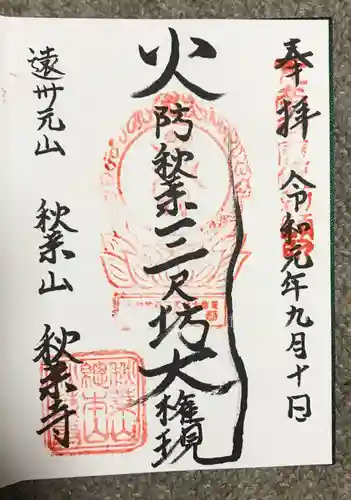 奉拝 令和元年九月十日
火防秋葉三尺坊大権現
遠州元山 秋葉山 秋葉寺